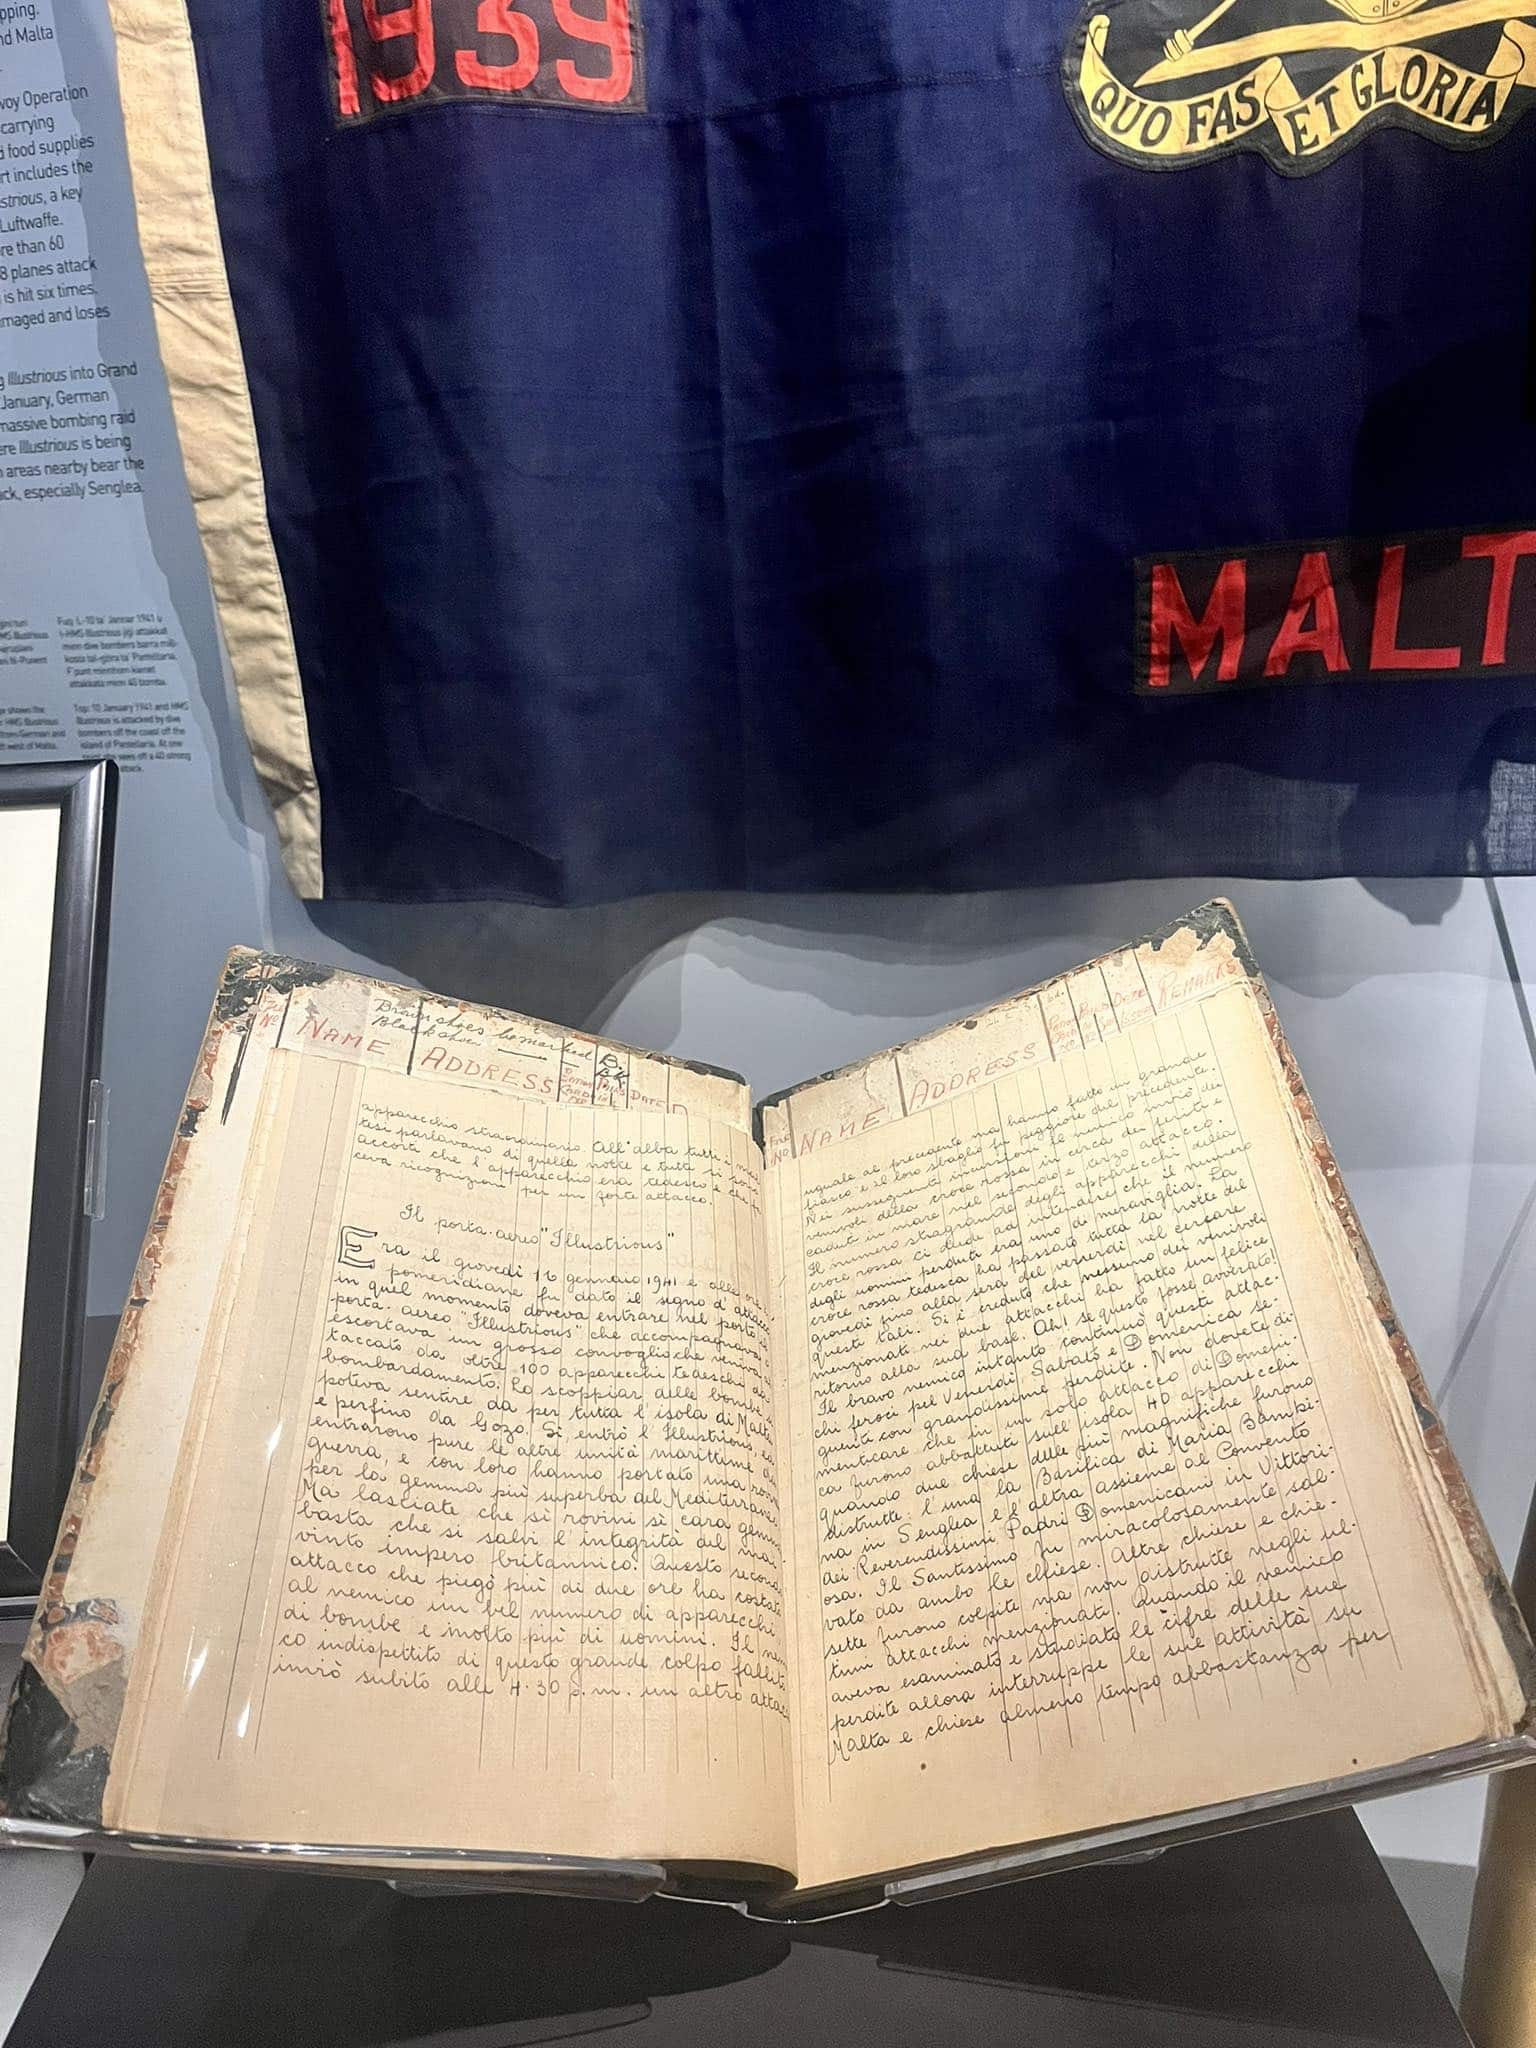 pping.
nd Malta
voy Operation
carrying
d food supplies
rt includes the
strious, a key
Luftwaffe.
re than 60
8 planes attack
is hit six times.
maged and loses
g Illustrious into Grand
January, German
massive bombing raid
ere Illustrious is being
n areas nearby bear the
ck, especially Senglea.
Fuq l-10 ta' Jannar 1941 u
l-HMS Illustrious jiġi attakkat
minn dive bombers barra mill-
kosta tal-gżira ta' Pantellaria.
F'punt minnhom kienet
attakkata minn 40 bomba.
Top: 10 January 1941 and HMS
Illustrious is attacked by dive
bombers off the coast off the
island of Pantellaria. At one
point she sees off a 40 strong
attack.
1939
QUO FAS ET GLORIA
MALT
No
NAME
Brown shoes be marked Br.
Black shoes BK.
ADDRESS
DATE
apparecchio straordinario. All'alba tutti i mal
tesi parlavano di quella notte e tutti si sono
accorti che l'apparecchio era tedesco e che fa
ceva ricognizioni per un forte attacco.
Il porta-aereo "Illustrious"
Era il giovedì 16 gennaio 1941 e alle
pomeridiane fu dato il segno d'attacco
in quel momento doveva entrare nel porto il
porta-aereo "Illustrious" che accompagnava
escortava un grosso convoglio che veniva at
taccato da oltre 100 apparecchi tedeschi da
bombardamento. Lo scoppiar delle bombe si
poteva sentire da per tutta l'isola di Malta
e perfino da Gozo. Si entrò l'Illustrious, ed
entrarono pure le altre unità marittime da
guerra, e con loro hanno portato una rovin
per la gemma più superba del Mediterraneo.
Ma lasciate che si rovini sì cara gemma
basta che si salvi l'integrità del mai
vinto impero britannico. Questo secondo
attacco che piegò più di due ore ha costato
al nemico un bel numero di apparecchi
di bombe e molto più di uomini. Il nemi
co indispettito di questo grande colpo fallito
inviò subito alle 4.30 p.m. un altro attacco
No
NAME
ADDRESS
DATE
REMARKS
uguale al precedente ma hanno fatto un grande
fiasco e il loro sbaglio fu peggiore del precedente.
Nei susseguenti incursioni il nemico inviò dei
velivoli della croce rossa in cerca dei feriti e
caduti in mare nel secondo e terzo attacco.
Il numero stragrande degli apparecchi della
croce rossa ci diede ad intendere che il numero
degli uomini perduti era uno di meraviglia. La
croce rossa tedesca ha passato tutta la notte del
giovedì fino alla sera del venerdì nel cercare
questi tali. Si è creduto che nessuno dei velivoli
menzionati nei due attacchi ha fatto un felice
ritorno alla sua base. Ah! se questo fosse avverato!
Il bravo nemico intanto continuò questi attac-
chi feroci pel Venerdì, Sabato e Domenica se-
guenti con grandissime perdite. Non dovete di-
menticare che in un solo attacco di Domeni-
ca furono abbattuti sull'isola 40 apparecchi
quando due chiese delle più magnifiche furono
distrutte: l'una la Basilica di Maria Bambi-
na in Senglea e l'altra assieme al Convento
dei Reverendissimi Padri Domenicani in Vittori-
osa. Il Santissimo fu miracolosamente sal-
vato da ambo le chiese. Altre chiese e chie-
sette furono colpite ma non distrutte negli ul-
timi attacchi menzionati. Quando il nemico
aveva esaminato e studiato le cifre delle sue
perdite allora interruppe le sue attività su
Malta e chiese almeno tempo abbastanza per